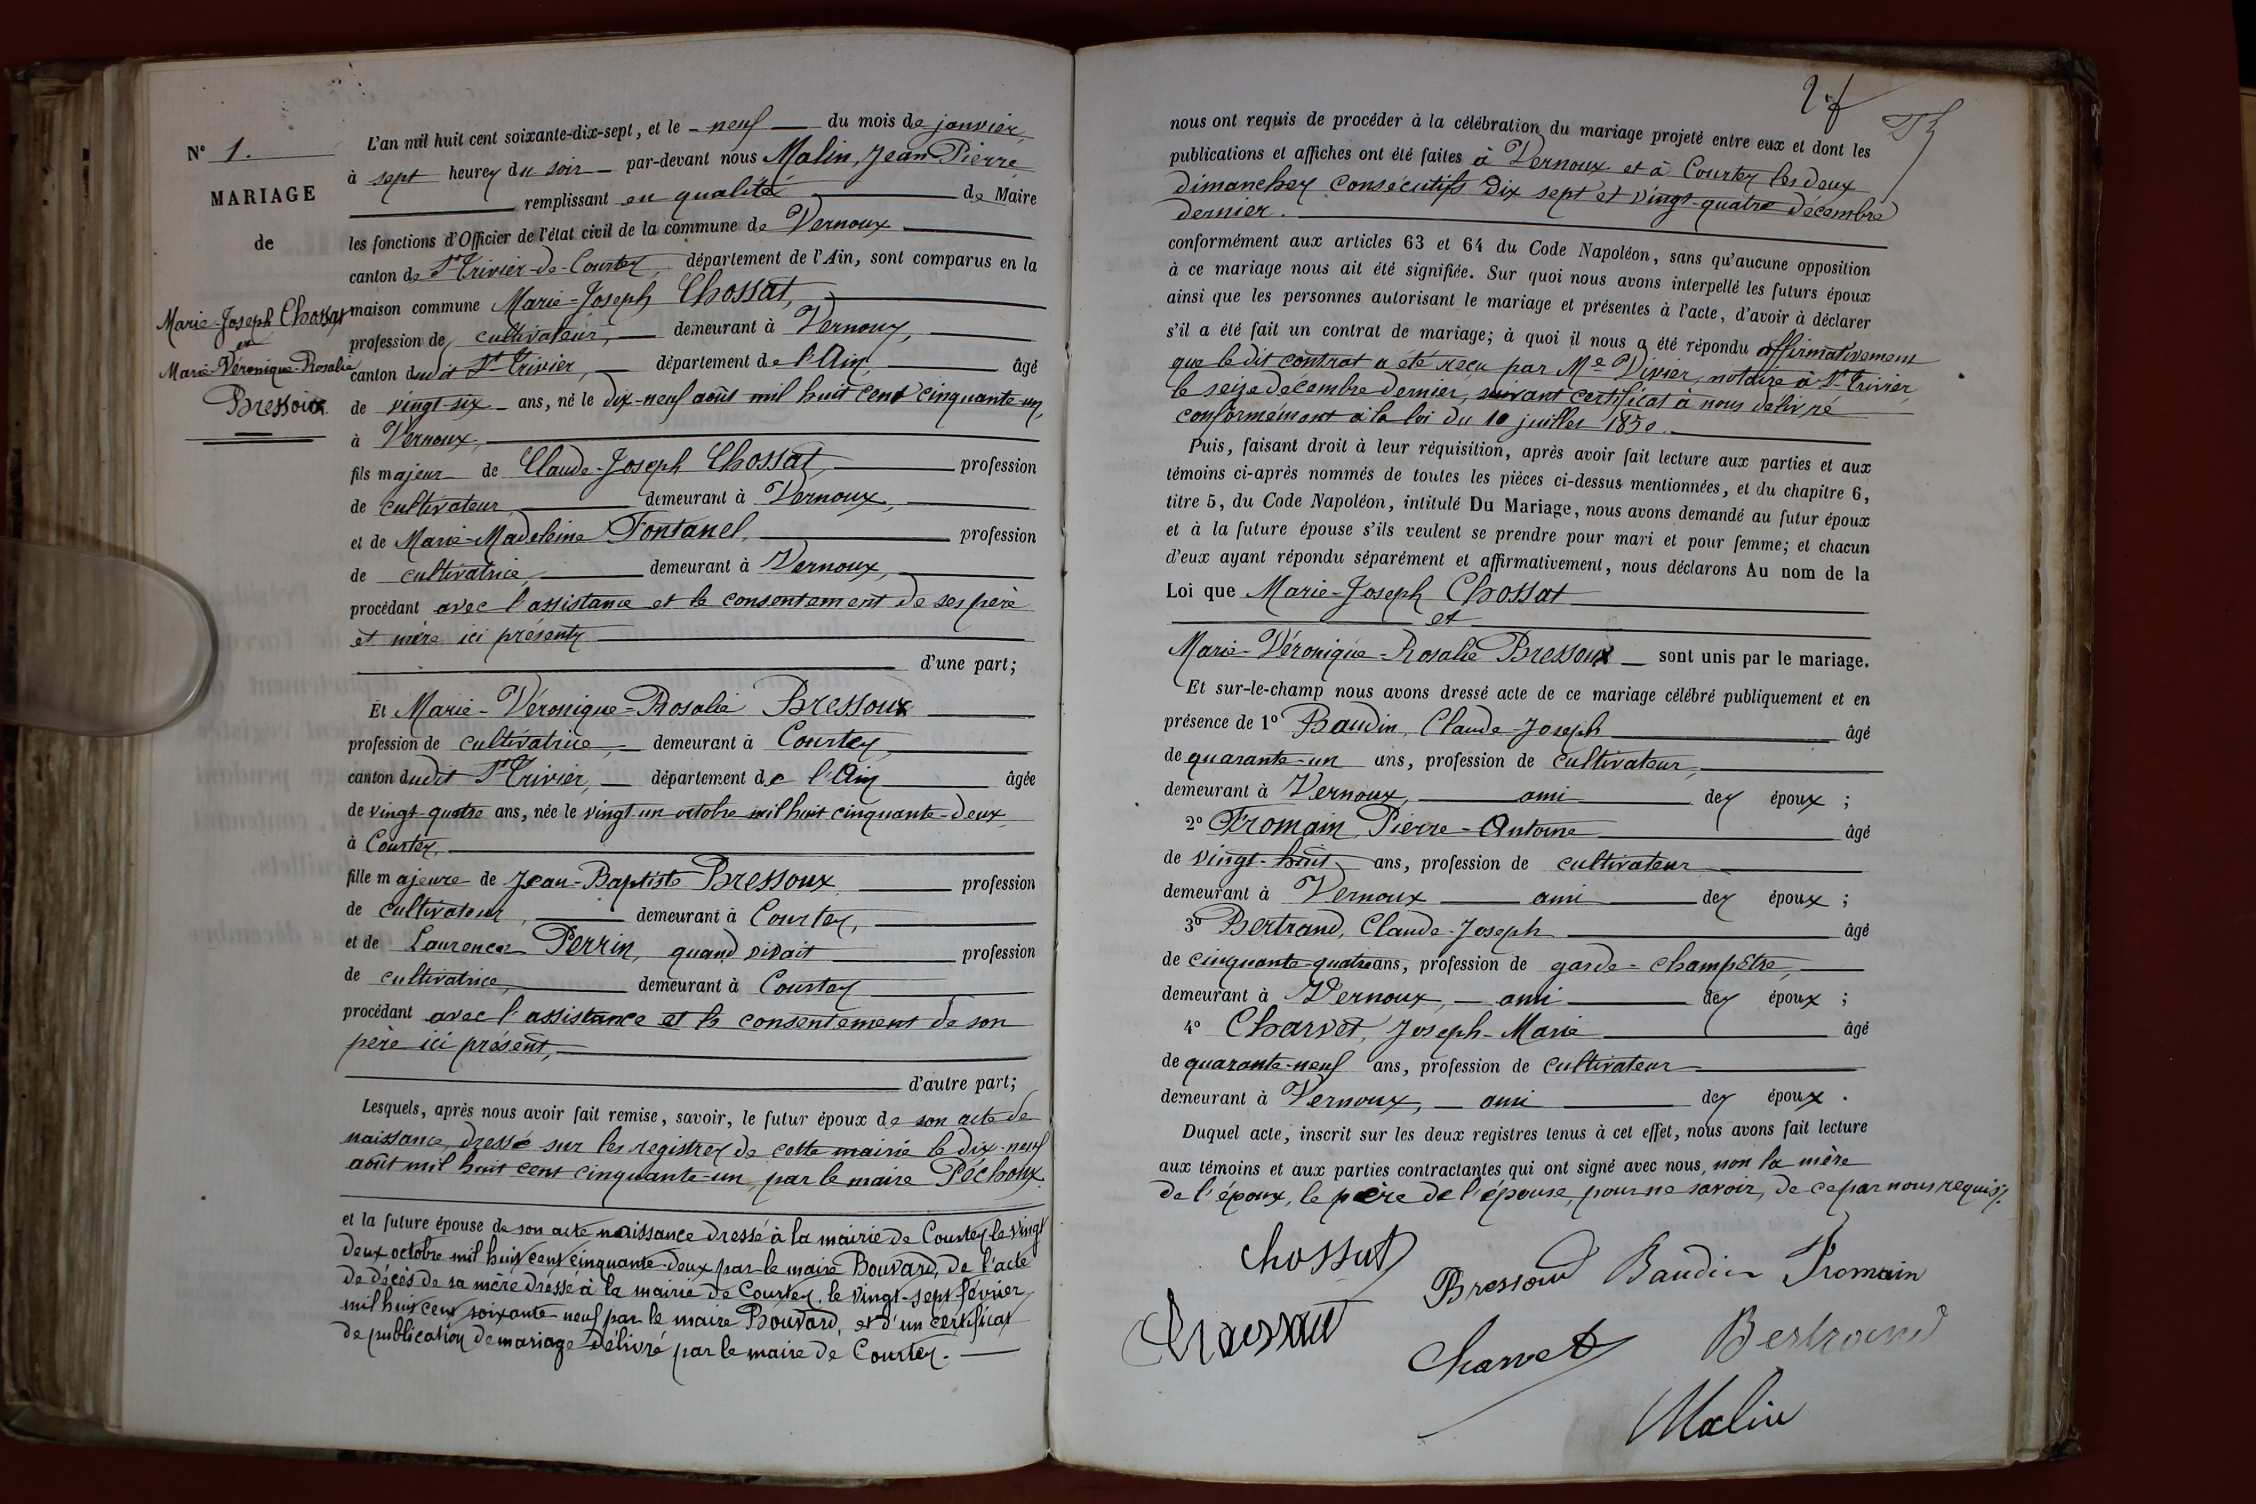 N° 1.
MARIAGE
de
Marie-Joseph Chossat
et
Marie-Véronique-Rosalie
Bressoux
L'an mil huit cent soixante-dix-sept, et le neuf du mois de janvier,
à sept heures du soir par-devant nous Malin, Jean Pierre
remplissant en qualité de Maire
les fonctions d'Officier de l'état civil de la commune de Vernoux
canton de St Trivier-de-Courtes, département de l'Ain, sont comparus en la
maison commune Marie-Joseph Chossat,
profession de cultivateur, demeurant à Vernoux,
canton dudit St Trivier, département de l'Ain, âgé
de vingt-six ans, né le dix-neuf août mil huit cent cinquante-un,
à Vernoux,
fils majeur de Claude-Joseph Chossat, profession
de cultivateur, demeurant à Vernoux,
et de Marie-Madeleine Fontanel, profession
de cultivatrice, demeurant à Vernoux,
procédant avec l'assistance et le consentement de ses père
et mère ici présents
d'une part;
Et Marie-Véronique-Rosalie Bressoux
profession de cultivatrice, demeurant à Courtes,
canton dudit St Trivier, département de l'Ain âgée
de vingt-quatre ans, née le vingt-un octobre mil huit cinquante-deux,
à Courtes,
fille majeure de Jean-Baptiste Bressoux profession
de cultivateur, demeurant à Courtes,
et de Laurence Perrin, quand vivait profession
de cultivatrice, demeurant à Courtes
procédant avec l'assistance et le consentement de son
père ici présent,
d'autre part;
Lesquels, après nous avoir fait remise, savoir, le futur époux de son acte de
naissance, dressé sur les registres de cette mairie le dix-neuf
août mil huit cent cinquante-un, par le maire Péchoux.
et la future épouse de son acte naissance dressé à la mairie de Courtes le vingt
deux octobre mil huit cent cinquante-deux par le maire Bouvard, de l'acte
de décès de sa mère dressé à la mairie de Courtes, le vingt-sept février
mil huit cent soixante-neuf par le maire Bouvard, et d'un certificat
de publication de mariage délivré par le maire de Courtes.
nous ont requis de procéder à la célébration du mariage projeté entre eux et dont les
publications et affiches ont été faites à Vernoux et à Courtes les deux
dimanches consécutifs dix sept et vingt-quatre décembre
dernier.
conformément aux articles 63 et 64 du Code Napoléon, sans qu'aucune opposition
à ce mariage nous ait été signifiée. Sur quoi nous avons interpellé les futurs époux
ainsi que les personnes autorisant le mariage et présentes à l'acte, d'avoir à déclarer
s'il a été fait un contrat de mariage; à quoi il nous a été répondu affirmativement
que le dit contrat a été reçu par Me Vivier, notaire à St Trivier,
le seize décembre dernier, suivant certificat à nous délivré
conformément à la loi du 10 juillet 1850.
Puis, faisant droit à leur réquisition, après avoir fait lecture aux parties et aux
témoins ci-après nommés de toutes les pièces ci-dessus mentionnées, et du chapitre 6,
titre 5, du Code Napoléon, intitulé Du Mariage, nous avons demandé au futur époux
et à la future épouse s'ils veulent se prendre pour mari et pour femme; et chacun
d'eux ayant répondu séparément et affirmativement, nous déclarons Au nom de la
Loi que Marie-Joseph Chossat
et
Marie-Véronique-Rosalie Bressoux sont unis par le mariage.
Et sur-le-champ nous avons dressé acte de ce mariage célébré publiquement et en
présence de 1° Baudin, Claude-Joseph âgé
de quarante-un ans, profession de cultivateur,
demeurant à Vernoux, ami des époux ;
2° Fromain, Pierre-Antoine âgé
de vingt-huit ans, profession de cultivateur
demeurant à Vernoux ami des époux ;
3° Bertrand, Claude-Joseph âgé
de cinquante-quatre ans, profession de garde-champêtre,
demeurant à Vernoux, ami des époux ;
4° Charvet, Joseph-Marie âgé
de quarante-neuf ans, profession de cultivateur
demeurant à Vernoux, ami des époux .
Duquel acte, inscrit sur les deux registres tenus à cet effet, nous avons fait lecture
aux témoins et aux parties contractantes qui ont signé avec nous, non la mère
de l'époux, le père de l'épouse, pour ne savoir, de ce par nous requis.
Chossat
Bressoux Baudin Fromain
Charvet Bertrand
Malin